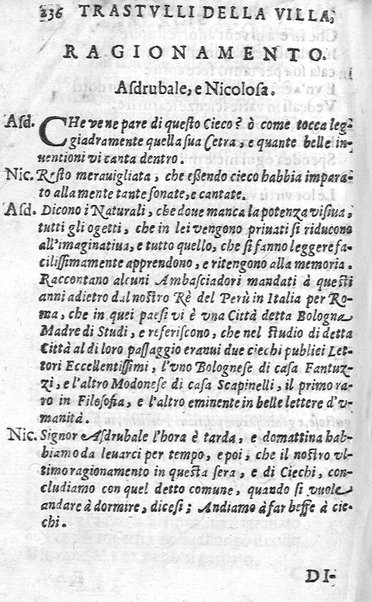 236 TRASTVLLI DELLA VILLA,
RAGIONAMENTO.
Asdrubale, e Nicolosa.
Asd. CHe vene pare di questo Cieco? ò come tocca leg
giadramente quella sua Cetra, e quante belle in
uentioni vi canta dentro.
Nic. Resto merauigliata, che essendo cieco habbia impara
to alla mente tante sonate, e cantate.
Asd. Dicono i Naturali, che doue manca la potenza visiua,
tutti gli ogetti, che in lei vengono priuati si riducono
all'imaginatiua, e tutto quello, che si fanno leggere fa-
cilissimamente apprendono, e ritengono alla memoria.
Raccontano alcuni Ambasciadori mandati à questi
anni adietro dal nostro Rè del Perù in Italia per Ro-
ma, che in quei paesi vi è vna Città detta Bologna
Madre di Studi, e referiscono, che nel studio di detta
Città al di loro passaggio eranui due ciechi publici Let-
tori Eccellentissimi, l'vno Bolognese di casa Fantuz-
zi, e l'altro Modonese di casa Scapinelli, il primo ra-
ro in Filosofia, e l'altro eminente in belle lettere d'v-
manità.
Nic. Signor Asdrubale l'hora è tarda, e domattina hab-
biamo da leuarci per tempo, e poi, che il nostro vl-
timo ragionamento in questa sera, e di Ciechi, con-
cludiamo con quel detto comune, quando si vuole
andare à dormire, dicesi; Andiamo à far beffe à cie-
chi.
DI-